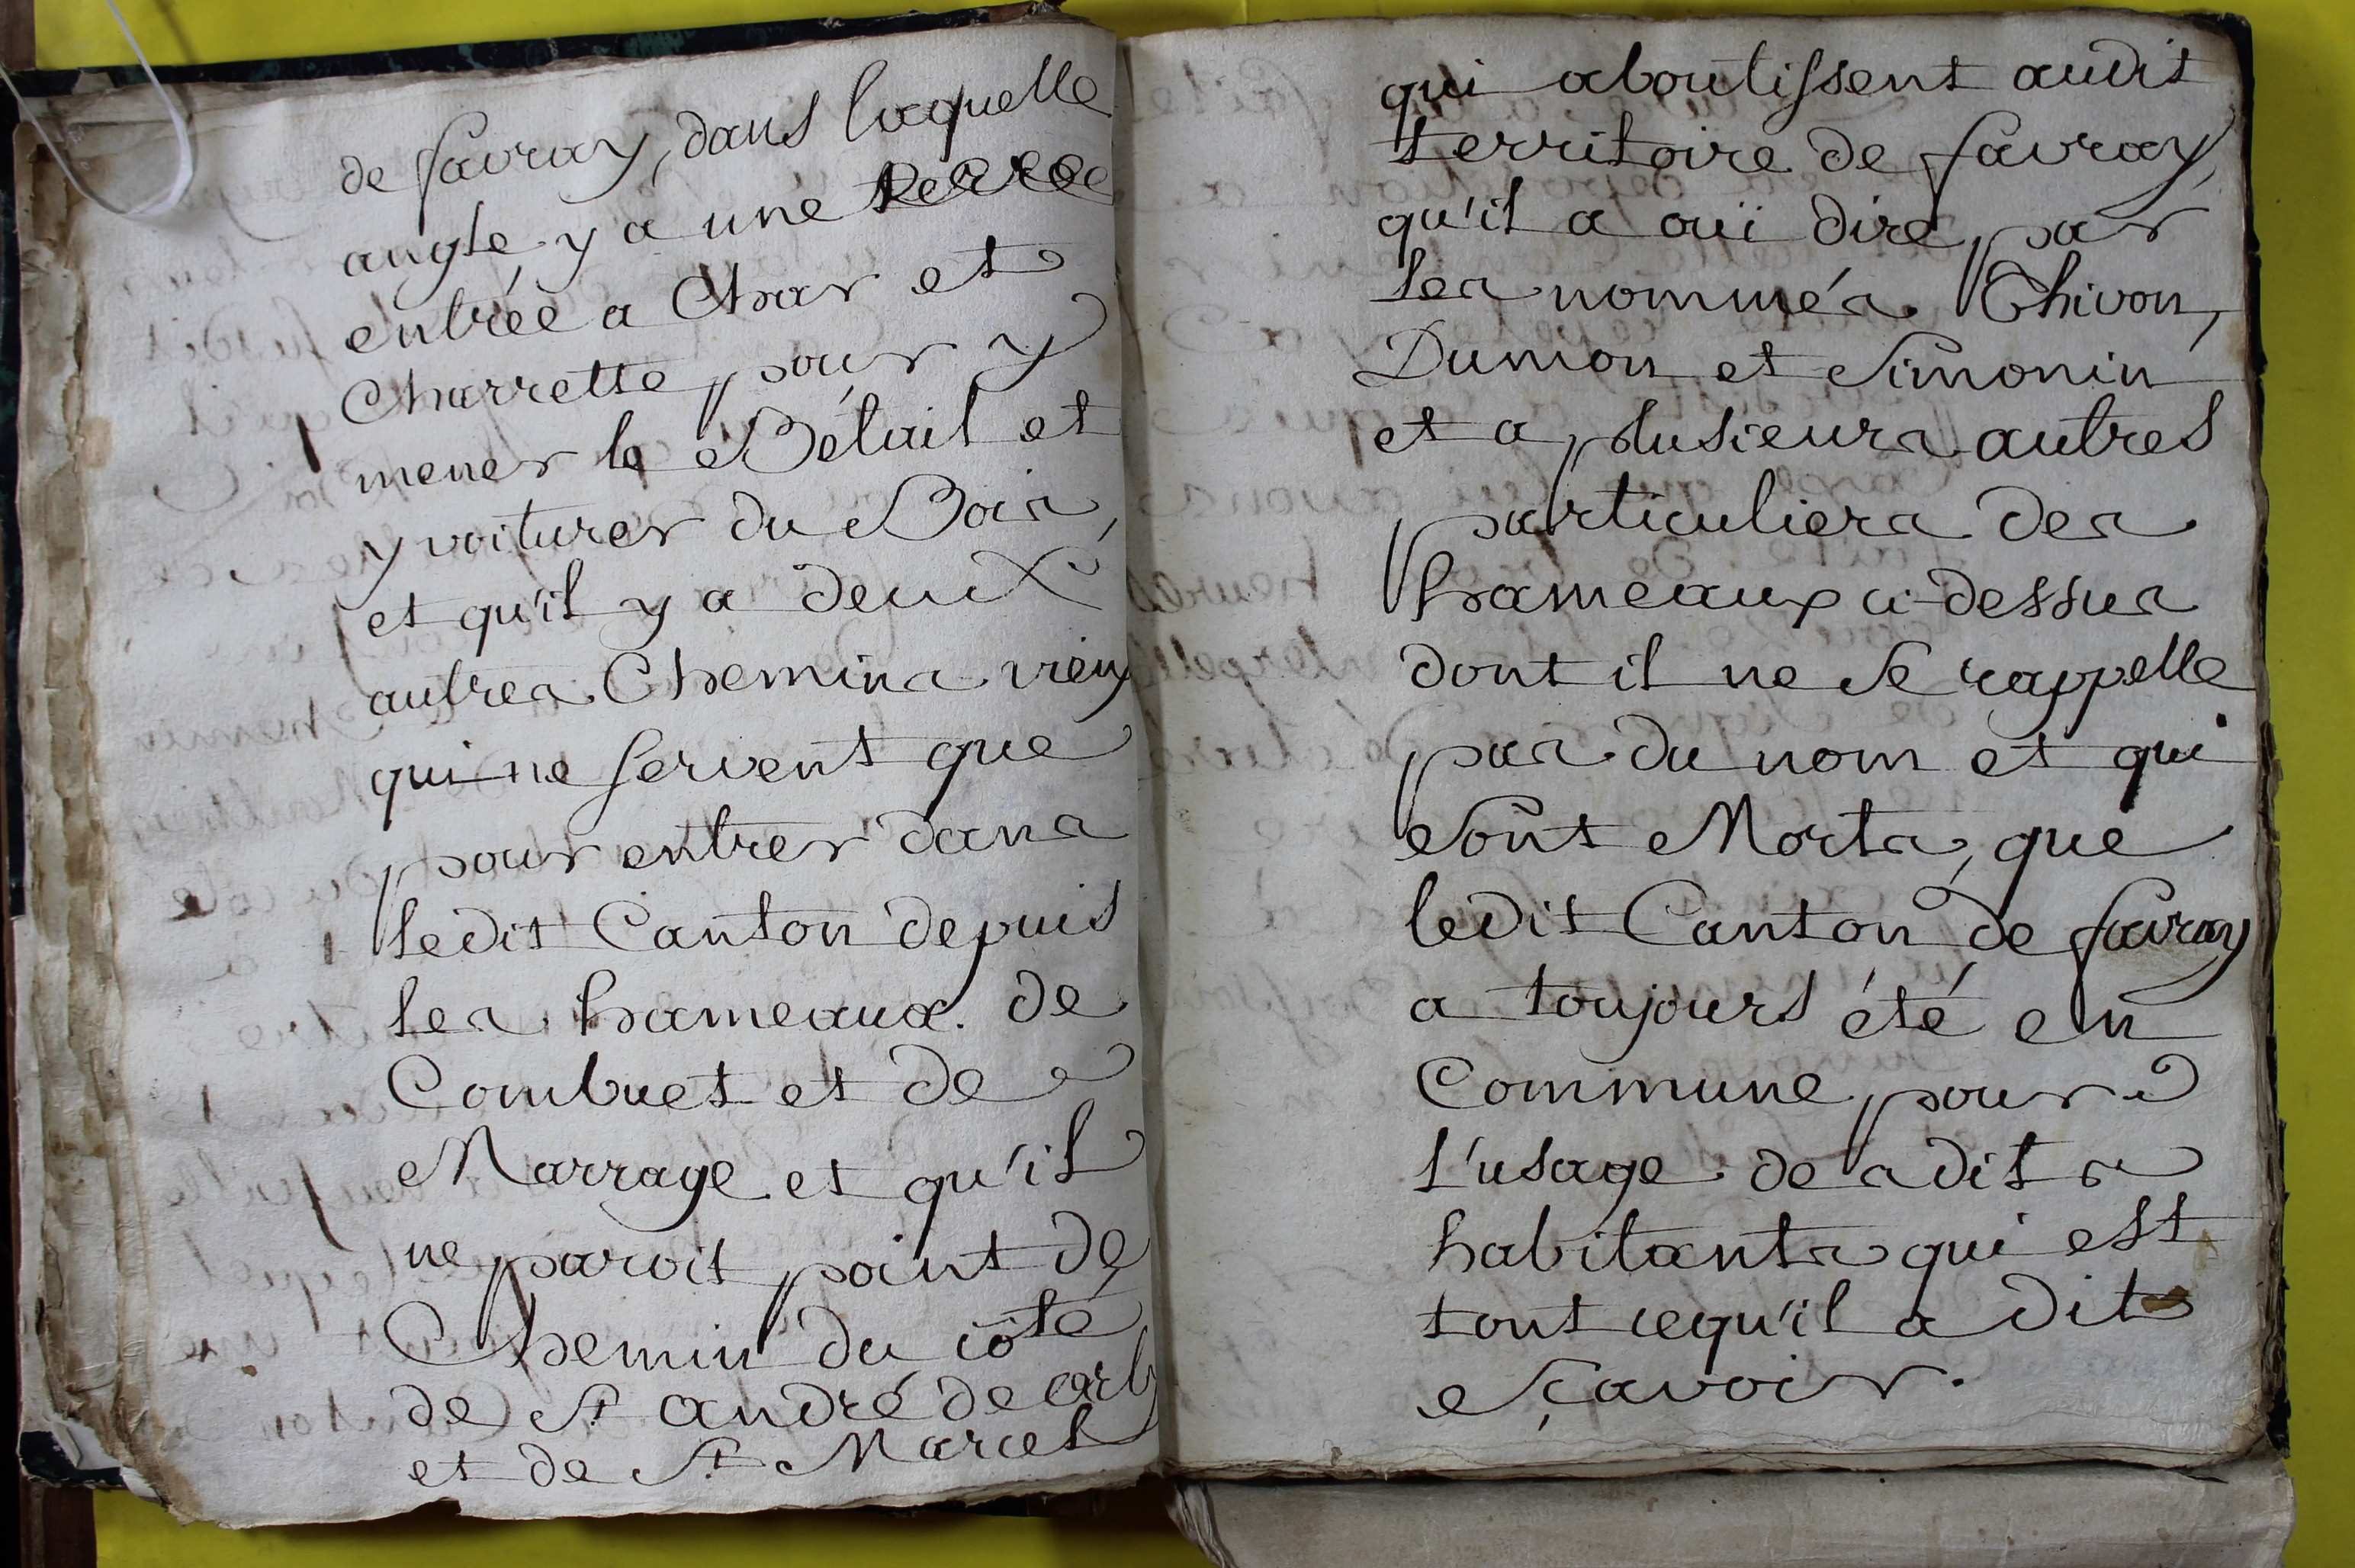 de favray, dans laquelle
angle, y a une
entrée a Char et
Charrette, pour y
mener le Bétail et
y voiturer du Bois,
et qu'il y a deux
autres Chemins vieux
qui ne servent que
pour entrer dans
ledit Canton depuis
les hameaux de
Combuet et de
Marrage et qu'il
ne paroit point de
Chemin du côté
de St andré de
et de St Marcel
qui aboutissent audit
territoire de favray,
qu'il a ouï dire, par
les nommés Thivon,
Dumon et Simonin
et a plusieurs autres
particuliers des
hameaux ci-dessus
dont il ne se rappelle
pas du nom et qui
sont Morts, que
ledit Canton de favray
a toujours été en
Commune, pour
l'usage desdits
habitants qui est
tout cequ'il a dit
sçavoir.